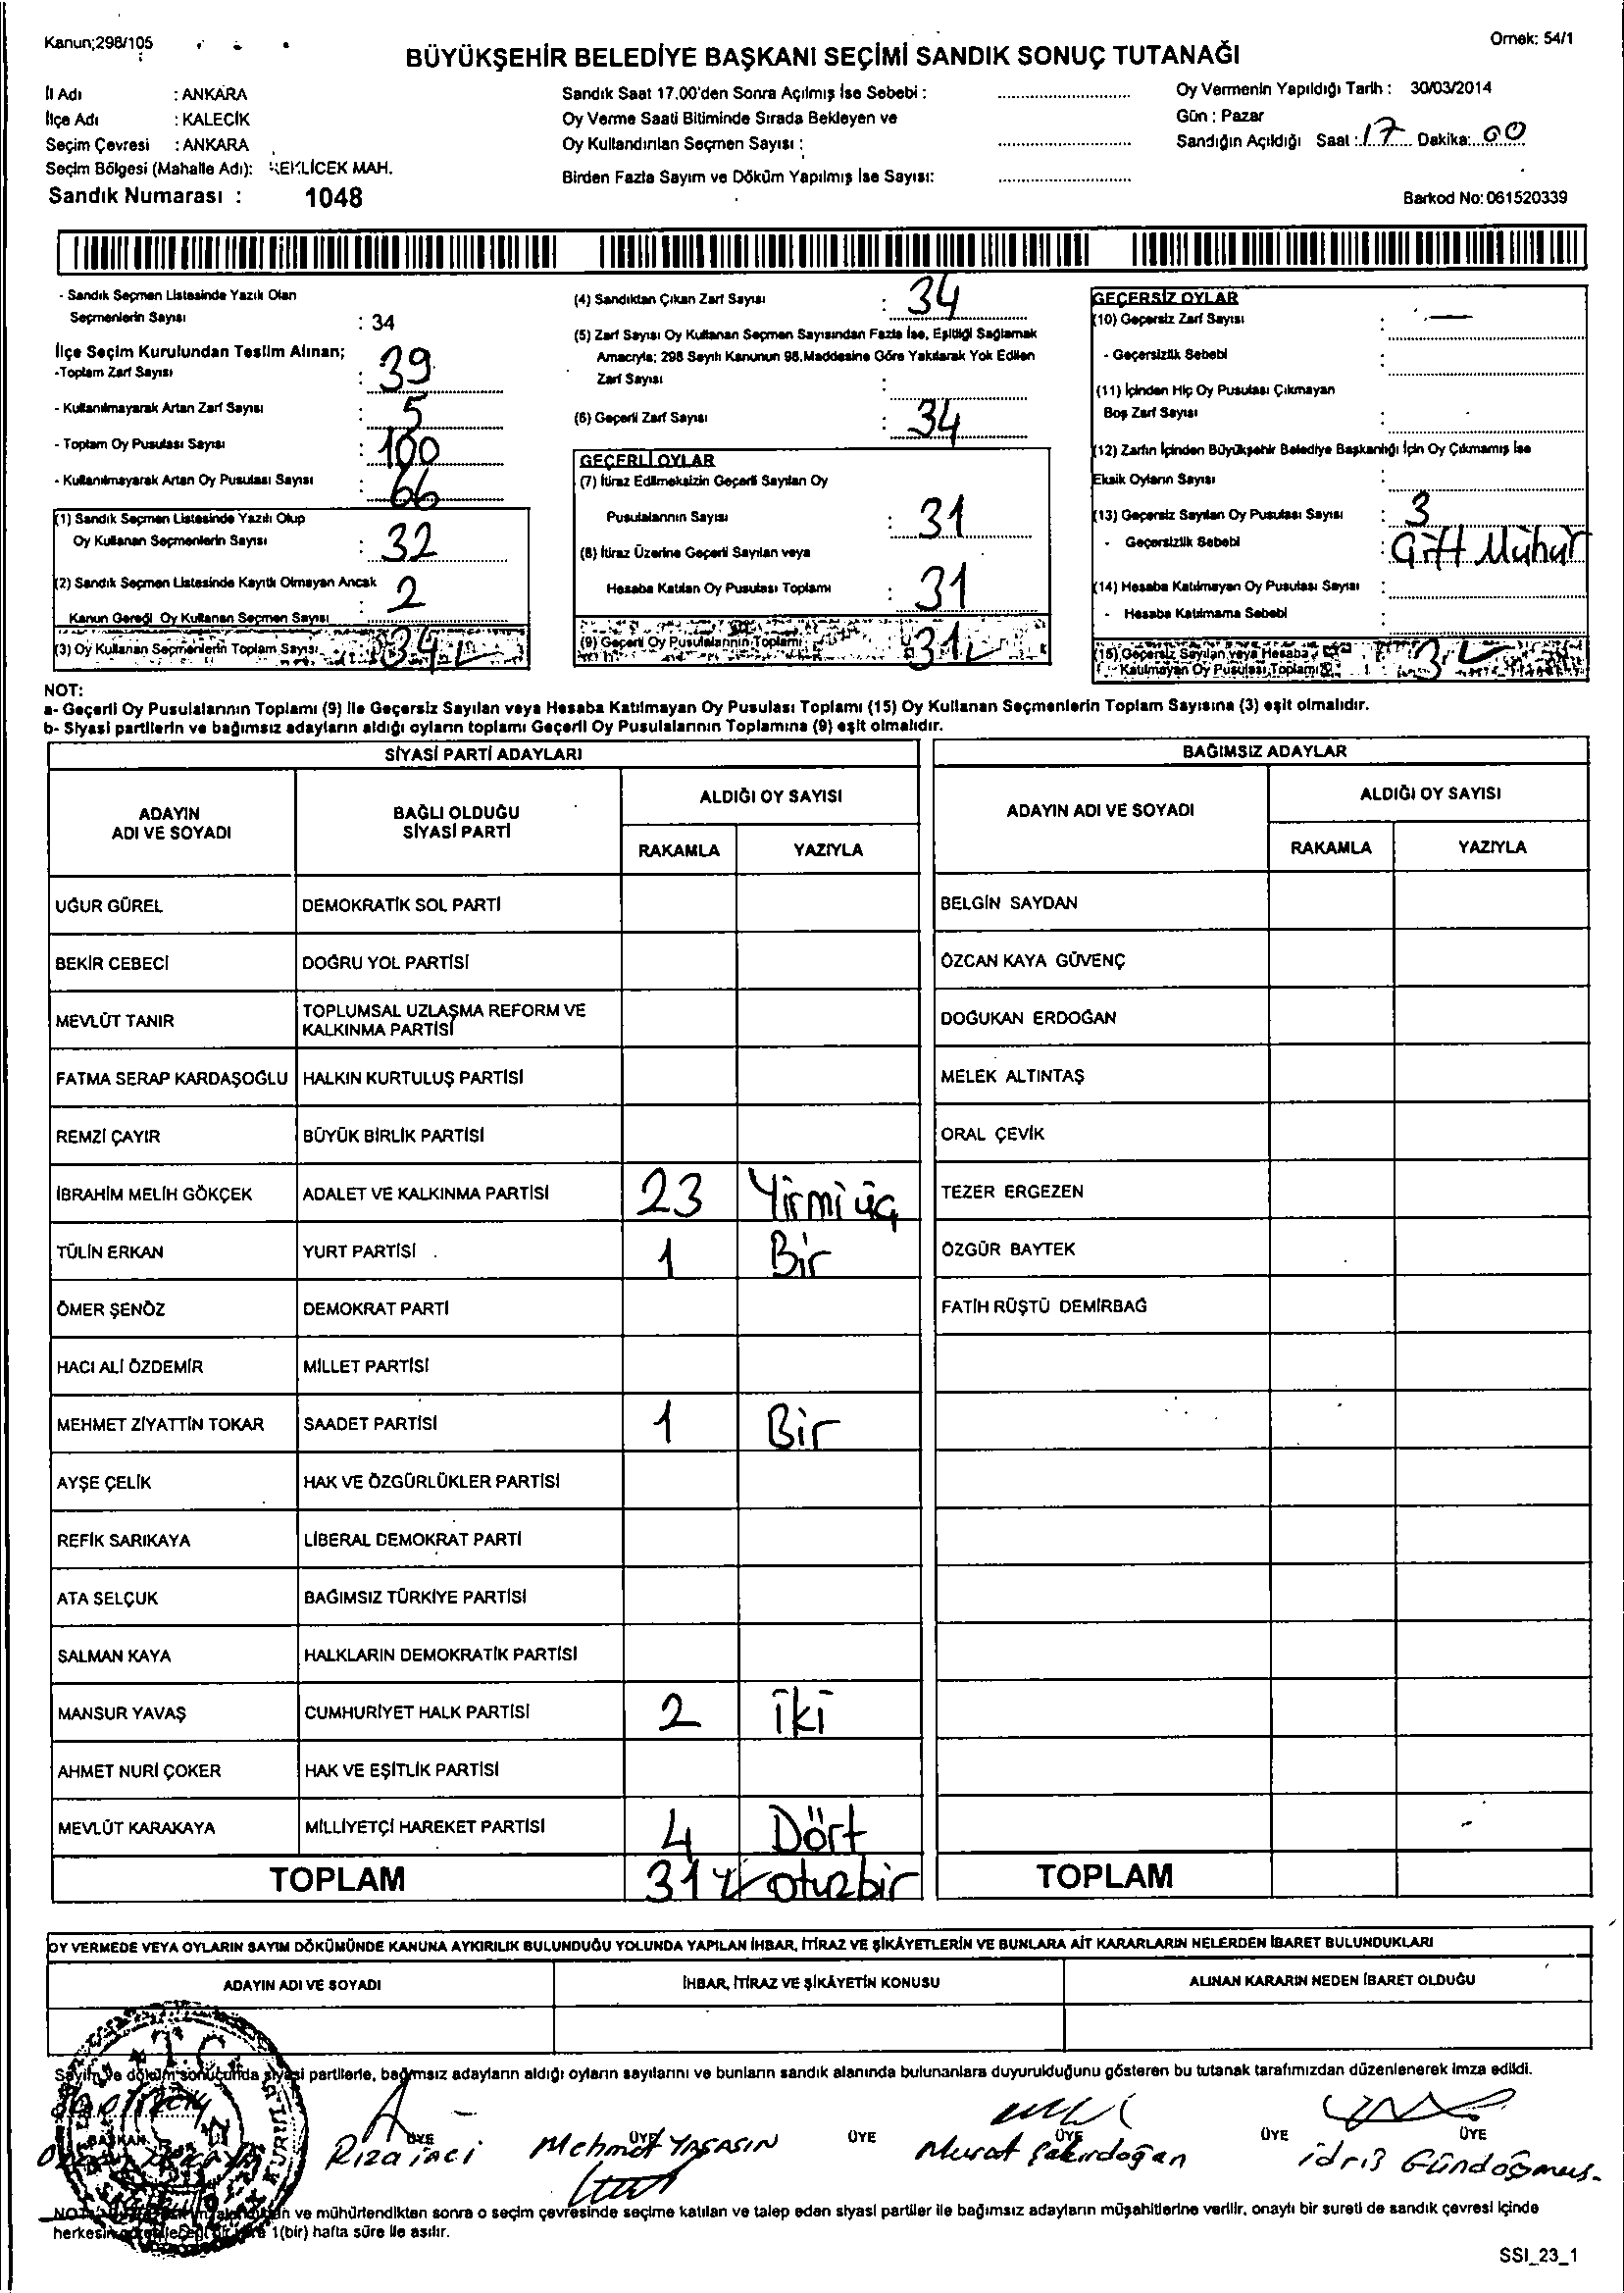 Kanun;298/105
Örnek: 54/1
BÜYÜKŞEHİR BELEDİYE BAŞKANI SEÇİMİ SANDIK SONUÇ TUTANAĞI
İl Adı : ANKARA
İlçe Adı : KALECİK
Seçim Çevresi : ANKARA
Seçim Bölgesi (Mahalle Adı): MAH.
Sandık Numarası : 1048
Sandık Saat 17.00'den Sonra Açılmış İse Sebebi :
Oy Verme Saati Bitiminde Sırada Bekleyen ve
Oy Kullandırılan Seçmen Sayısı :
Birden Fazla Sayım ve Döküm Yapılmış İse Sayısı:
Oy Vermenin Yapıldığı Tarih : 30/03/2014
Gün : Pazar
Sandığın Açıldığı Saat : 17 Dakika: 00
Barkod No: 061520339
- Sandık Seçmen Listesinde Yazılı Olan
Seçmenlerin Sayısı : 34
İlçe Seçim Kurulundan Teslim Alınan;
-Toplam Zarf Sayısı : 39
- Kullanılmayarak Artan Zarf Sayısı : 5
- Toplam Oy Pusulası Sayısı : 100
- Kullanılmayarak Artan Oy Pusulası Sayısı : 66
(1) Sandık Seçmen Listesinde Yazılı Olup
Oy Kullanan Seçmenlerin Sayısı : 32
(2) Sandık Seçmen Listesinde Kayıtlı Olmayan Ancak
Kanun Gereği Oy Kullanan Seçmen Sayısı : 2
(3) Oy Kullanan Seçmenlerin Toplam Sayısı 34
(4) Sandıktan Çıkan Zarf Sayısı : 34
(5) Zarf Sayısı Oy Kullanan Seçmen Sayısından Fazla İse, Eşitliği Sağlamak
Amacıyla; 298 Sayılı Kanunun 98.Maddesine Göre Yakılarak Yok Edilen
Zarf Sayısı :
(6) Geçerli Zarf Sayısı : 34
GEÇERLİ OYLAR
(7) İtiraz Edilmeksizin Geçerli Sayılan Oy
Pusulalarının Sayısı : 31
(8) İtiraz Üzerine Geçerli Sayılan veya
Hesaba Katılan Oy Pusulası Toplamı : 31
(9) Geçerli Oy Pusulalarının Toplamı 31
GEÇERSİZ OYLAR
(10) Geçersiz Zarf Sayısı : —
- Geçersizlik Sebebi :
(11) İçinden Hiç Oy Pusulası Çıkmayan
Boş Zarf Sayısı :
(12) Zarfın İçinden Büyükşehir Belediye Başkanlığı İçin Oy Çıkmamış İse
Eksik Oyların Sayısı :
(13) Geçersiz Sayılan Oy Pusulası Sayısı : 3
- Geçersizlik Sebebi : Çift Mühür
(14) Hesaba Katılmayan Oy Pusulası Sayısı :
- Hesaba Katılmama Sebebi :
(15) Geçersiz Sayılan veya Hesaba
Katılmayan Oy Pusulası Toplamı 3
NOT:
a- Geçerli Oy Pusulalarının Toplamı (9) ile Geçersiz Sayılan veya Hesaba Katılmayan Oy Pusulası Toplamı (15) Oy Kullanan Seçmenlerin Toplam Sayısına (3) eşit olmalıdır.
b- Siyasi partilerin ve bağımsız adayların aldığı oyların toplamı Geçerli Oy Pusulalarının Toplamına (9) eşit olmalıdır.
SİYASİ PARTİ ADAYLARI
ADAYIN ADI VE SOYADI
BAĞLI OLDUĞU SİYASİ PARTİ
ALDIĞI OY SAYISI
RAKAMLA YAZIYLA
UĞUR GÜREL DEMOKRATİK SOL PARTİ
BEKİR CEBECİ DOĞRU YOL PARTİSİ
MEVLÜT TANIR TOPLUMSAL UZLAŞMA REFORM VE KALKINMA PARTİSİ
FATMA SERAP KARDAŞOĞLU HALKIN KURTULUŞ PARTİSİ
REMZİ ÇAYIR BÜYÜK BİRLİK PARTİSİ
İBRAHİM MELİH GÖKÇEK ADALET VE KALKINMA PARTİSİ 23 Yirmi üç
TÜLİN ERKAN YURT PARTİSİ 1 Bir
ÖMER ŞENÖZ DEMOKRAT PARTİ
HACI ALİ ÖZDEMİR MİLLET PARTİSİ
MEHMET ZİYATTİN TOKAR SAADET PARTİSİ 1 Bir
AYŞE ÇELİK HAK VE ÖZGÜRLÜKLER PARTİSİ
REFİK SARIKAYA LİBERAL DEMOKRAT PARTİ
ATA SELÇUK BAĞIMSIZ TÜRKİYE PARTİSİ
SALMAN KAYA HALKLARIN DEMOKRATİK PARTİSİ
MANSUR YAVAŞ CUMHURİYET HALK PARTİSİ 2 iki
AHMET NURİ ÇOKER HAK VE EŞİTLİK PARTİSİ
MEVLÜT KARAKAYA MİLLİYETÇİ HAREKET PARTİSİ 4 Dört
TOPLAM 31 otuzbir
BAĞIMSIZ ADAYLAR
ADAYIN ADI VE SOYADI
ALDIĞI OY SAYISI
RAKAMLA YAZIYLA
BELGİN SAYDAN
ÖZCAN KAYA GÜVENÇ
DOĞUKAN ERDOĞAN
MELEK ALTINTAŞ
ORAL ÇEVİK
TEZER ERGEZEN
ÖZGÜR BAYTEK
FATİH RÜŞTÜ DEMİRBAĞ
TOPLAM
OY VERMEDE VEYA OYLARIN SAYIM DÖKÜMÜNDE KANUNA AYKIRILIK BULUNDUĞU YOLUNDA YAPILAN İHBAR, İTİRAZ VE ŞİKÂYETLERİN VE BUNLARA AİT KARARLARIN NELERDEN İBARET BULUNDUKLARI
ADAYIN ADI VE SOYADI
İHBAR, İTİRAZ VE ŞİKÂYETİN KONUSU
ALINAN KARARIN NEDEN İBARET OLDUĞU
Sayım ve döküm sonucunda siyasi partilerle, bağımsız adayların aldığı oyların sayılarını ve bunların sandık alanında bulunanlara duyurulduğunu gösteren bu tutanak tarafımızdan düzenlenerek imza edildi.
BAŞKAN ÜYE ÜYE ÜYE ÜYE ÜYE ÜYE
Rıza inci Mehmet YAŞASIN Murat Çakırdoğan idris Gündoğmuş
NOT: ve mühürlendikten sonra o seçim çevresinde seçime katılan ve talep eden siyasi partiler ile bağımsız adayların müşahitlerine verilir, onaylı bir sureti de sandık çevresi içinde
herkesin 1(bir) hafta süre ile asılır.
SSI_23_1